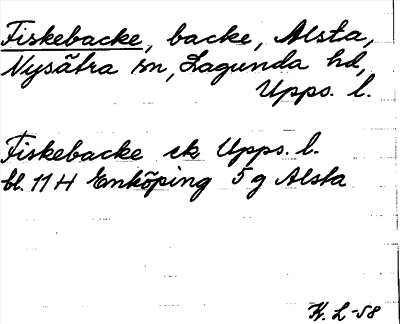 Fiskebacke, backe, Alsta,
Nysätra sn, Lagunda hd,
Upps. l.
Fiskebacke ek Upps. l.
bl. 11 H Enköping 5 g Alsta
K. L -58